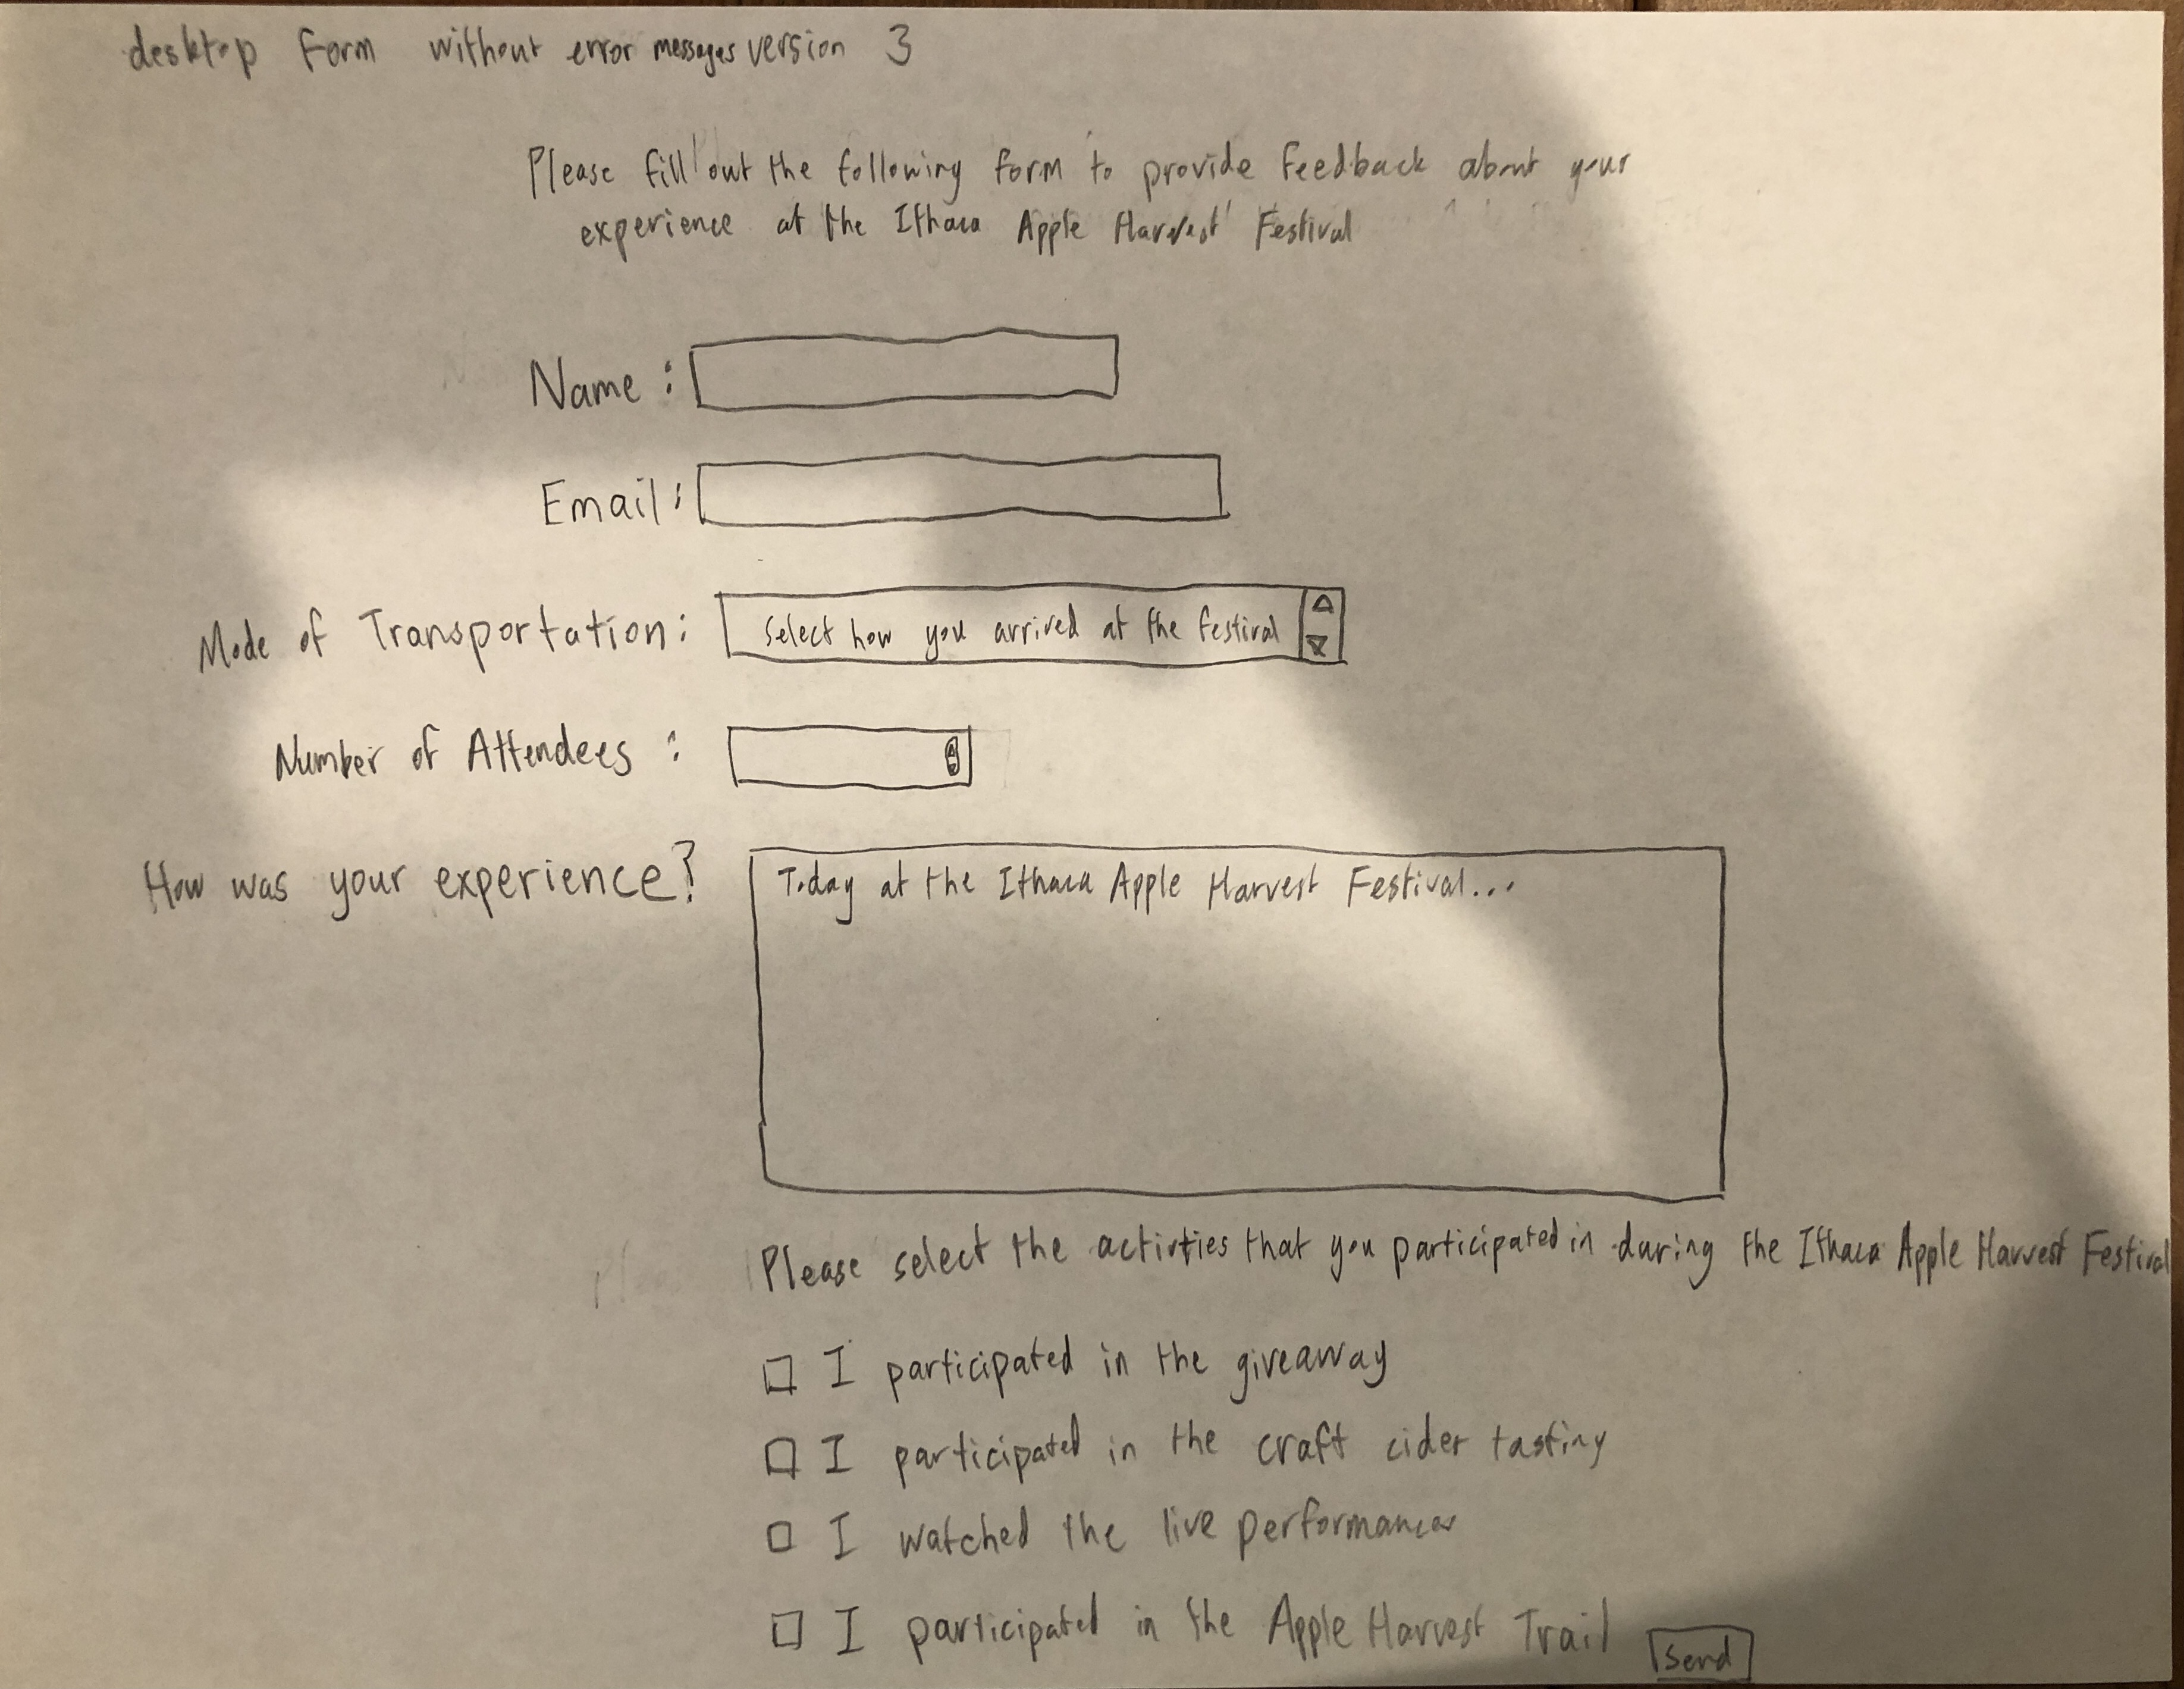 desktop form without error messages version 3
Please fill out the following form to provide feedback about your
experience at the Ithaca Apple Harvest Festival
Name :
Email :
Mode of Transportation : Select how you arrived at the festival
Number of Attendees :
How was your experience? Today at the Ithaca Apple Harvest Festival...
Please select the activties that you participated in during the Ithaca Apple Harvest Festival
I participated in the giveaway
I participated in the craft cider tasting
I watched the live performances
I participated in the Apple Harvest Trail
Send